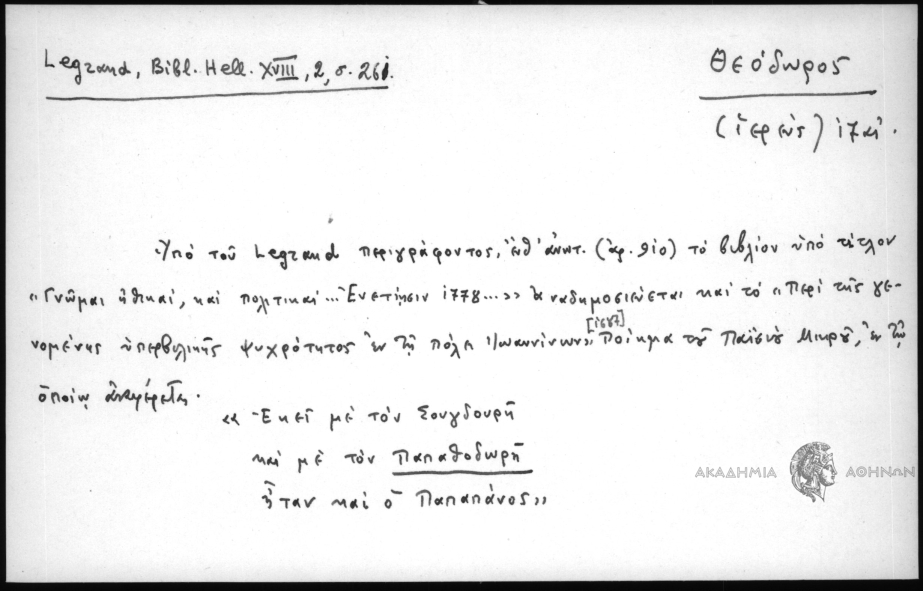 Legrand, Bibl. Hell. XVIII, 2, σ. 261.
Θεόδωρος
(ἱερεὺς) ιζ αἰ.
Ὑπὸ τοῦ Legrand περιγράφοντος, ἔνθ' ἀνωτ. (ἀρ. 910) τὸ βιβλίον ὑπὸ τίτλον
«Γνῶμαι ἠθικαί, καὶ πολιτικαί... Ἐνετίησιν 1778...» ἀναδημοσιεύεται καὶ τὸ «Περὶ τῆς γε-
νομένης ὑπερβολικῆς ψυχρότητος ἐν τῇ πόλει Ἰωαννίνων», [1687] Ποίημα τοῦ Παϊσίου Μικροῦ, ἐν τῷ
ὁποίῳ ἀναφέρεται.
«Ἐκεῖ μὲ τὸν Σουγδουρῆ
καὶ μὲ τὸν Παπαθοδωρῆ
ἦταν καὶ ὁ Παπαπάνος»
ΑΚΑΔΗΜΙΑ ΑΘΗΝΩΝ